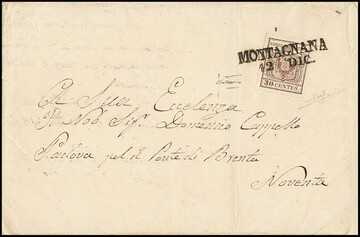 MONTAGNANA
12 DIC.
30 CENTES
A Sua Eccelenza
Nob. Sig. Domenico Cappello
Padova pel il Ponte di Brenta
Noventa